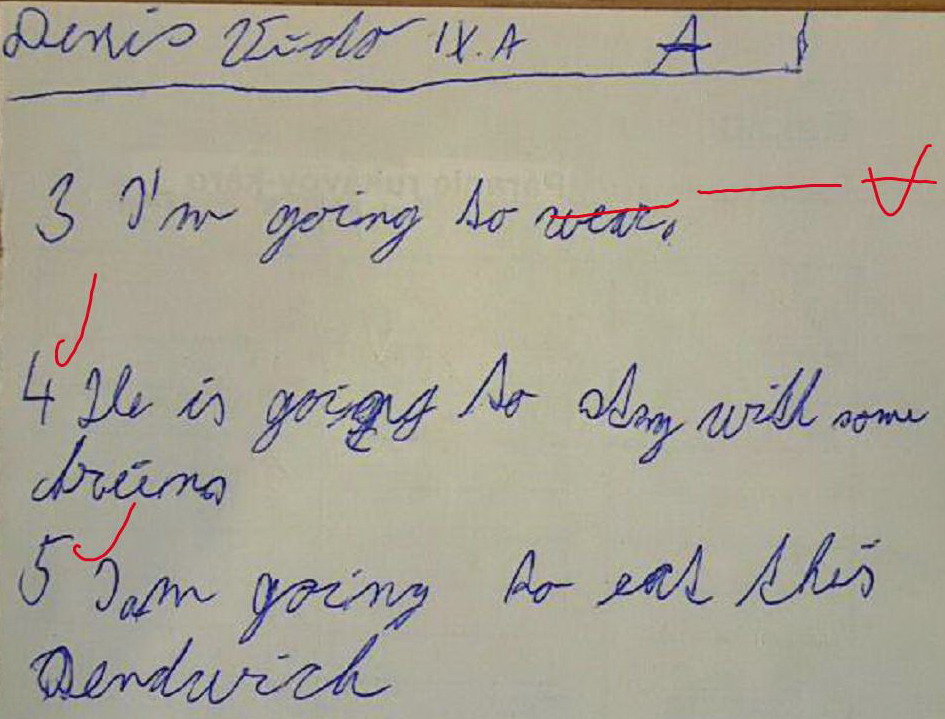 Denis Vido IX.A A
3 I'm going to wear.
4 He is going to stay with some
5 I am going to eat this
Sendwich